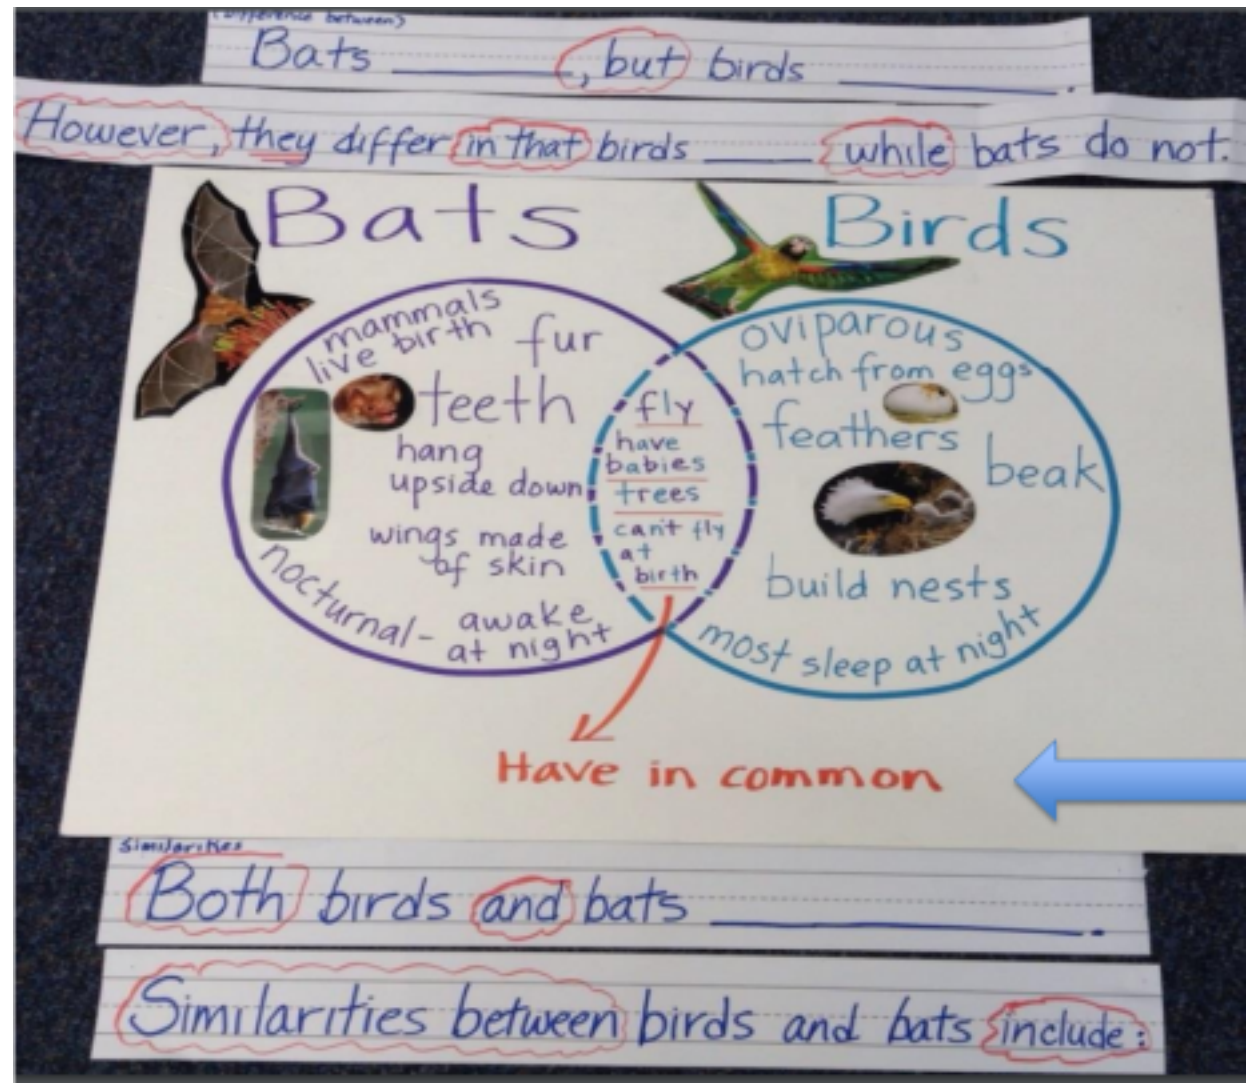 (Difference between)
Bats ________, but birds ________.
However, they differ in that birds ____ while bats do not.
Bats
Birds
mammals
live birth
fur
teeth
hang
upside down
wings made
of skin
nocturnal - awake
at night
fly
have
babies
trees
can't fly
at
birth
oviparous
hatch from eggs
feathers
beak
build nests
most sleep at night
Have in common
Similarities
Both birds and bats ________.
Similarities between birds and bats include: